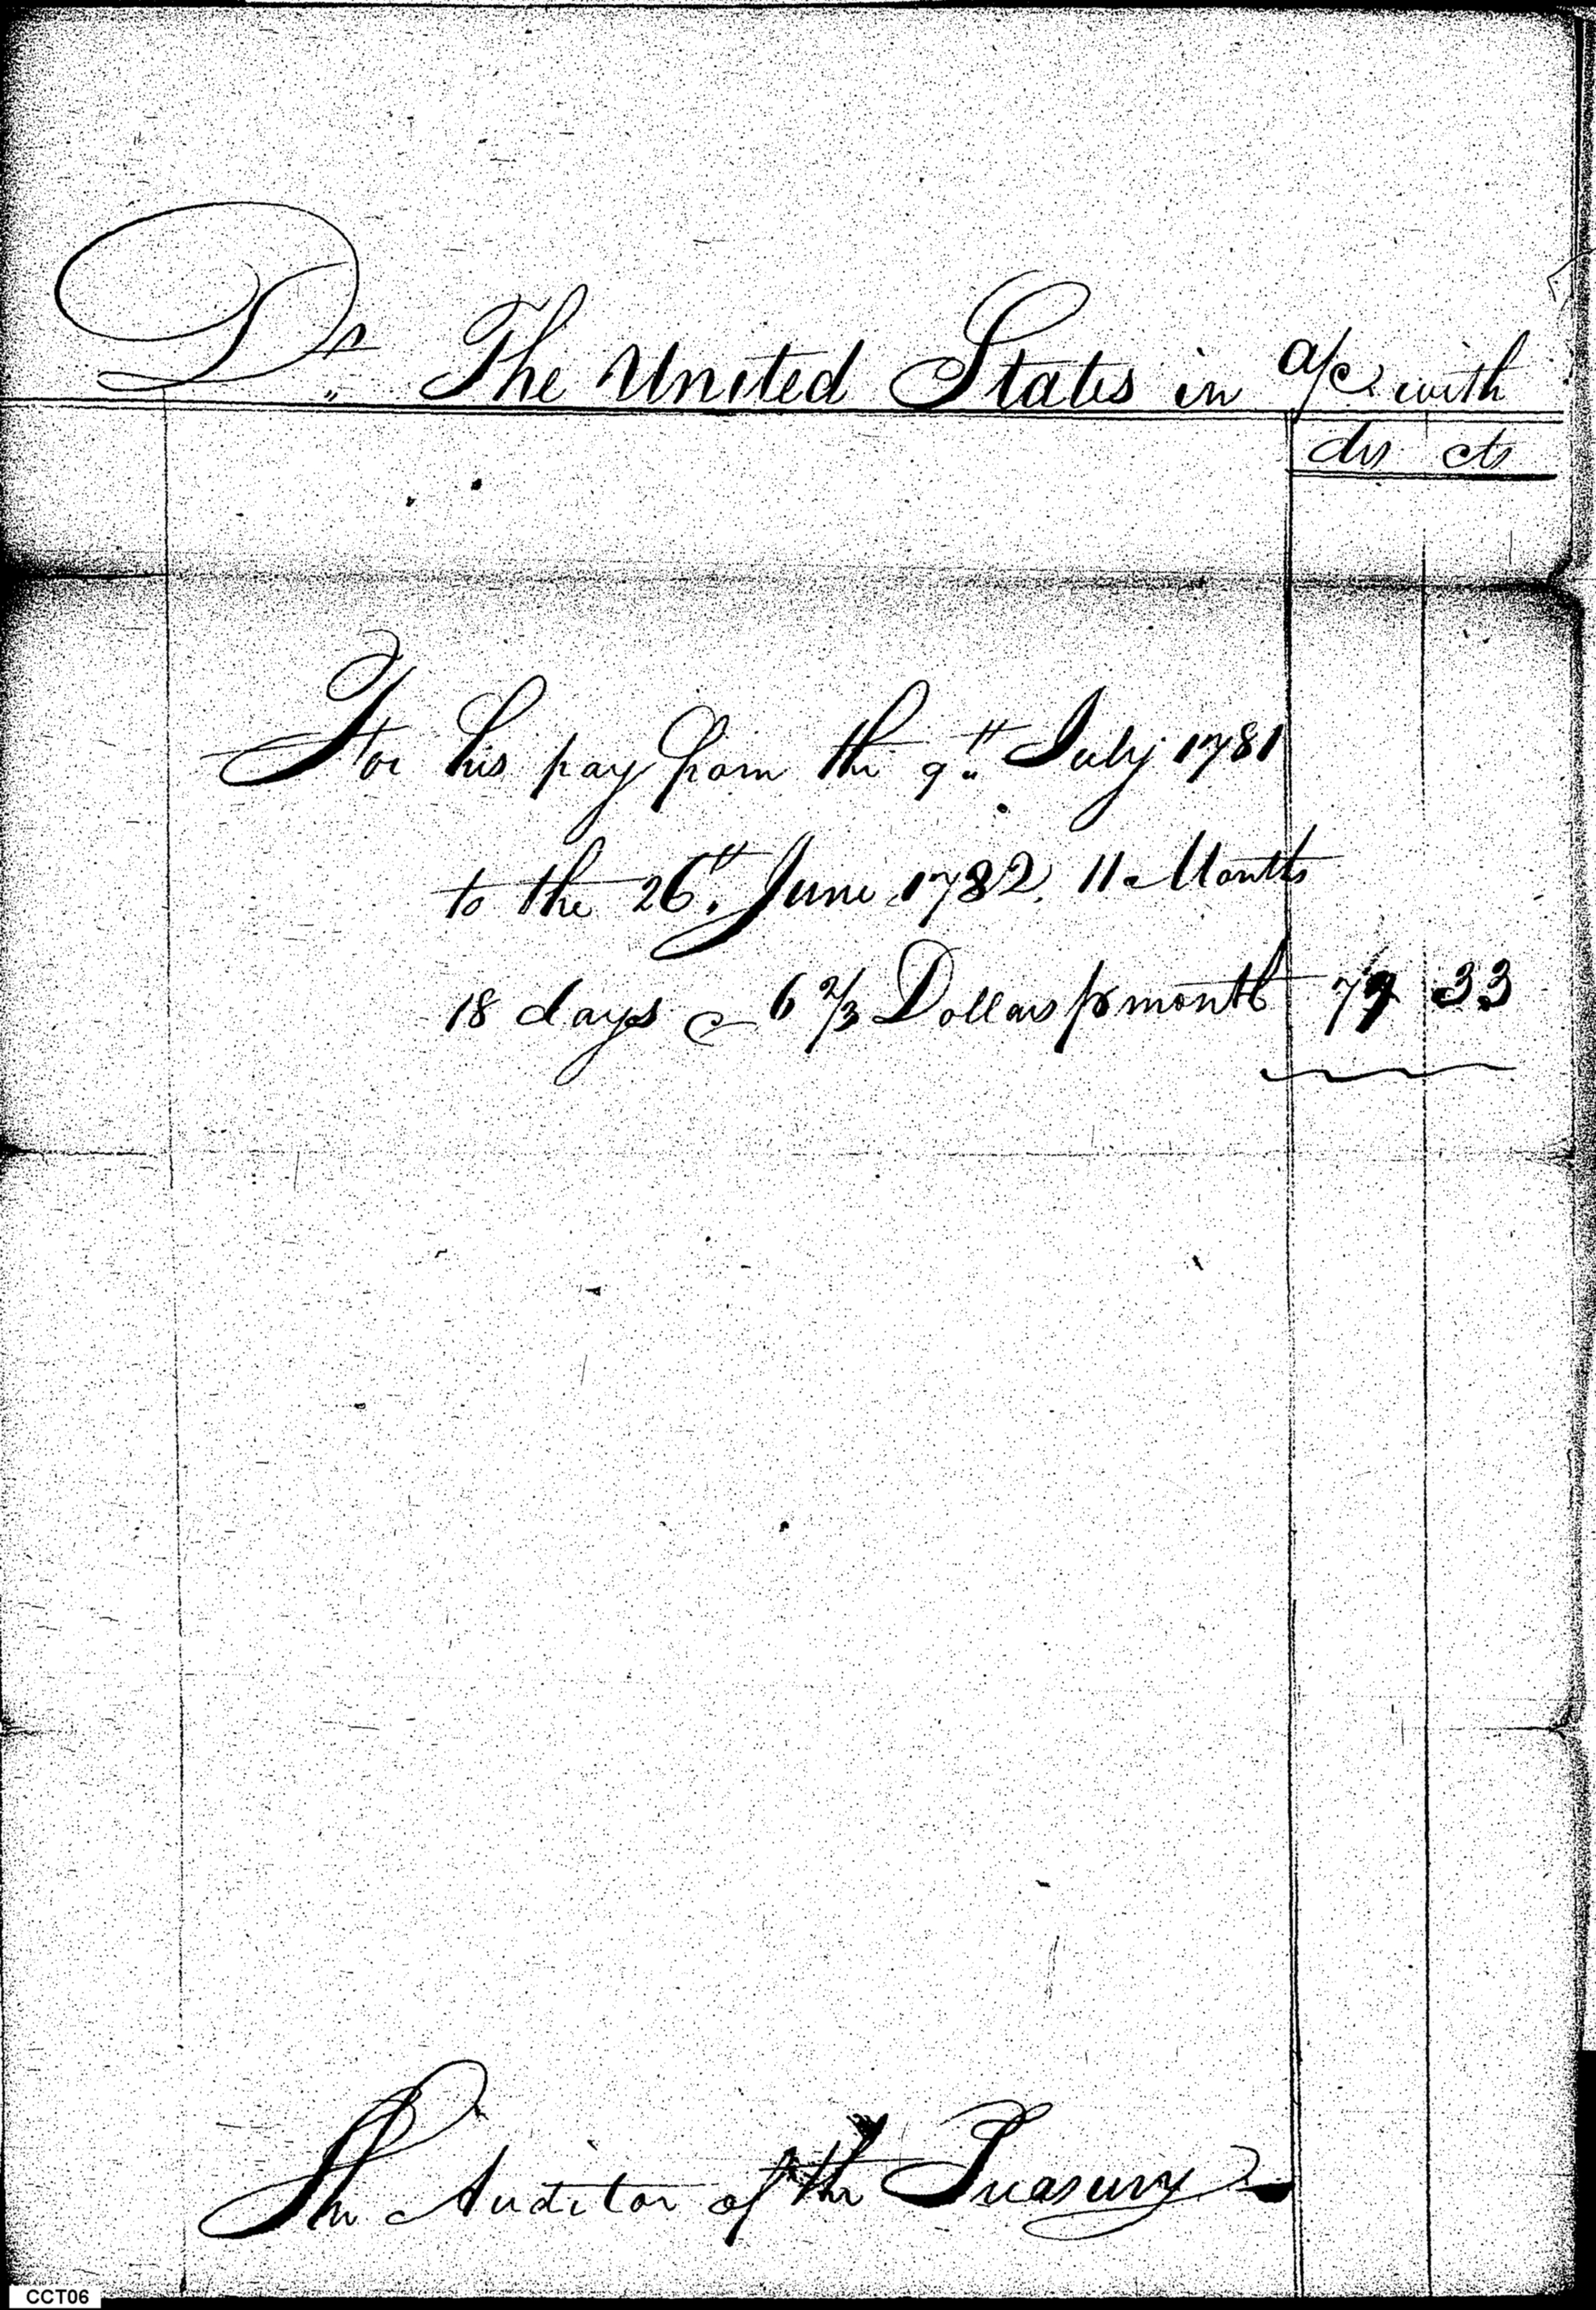 Dr. The United States in a/c with
dls cts
For his pay from the 9th July 1781
to the 26th June 1782. 11 Months
18 days @ 6 2/3 Dollars pr month 77 33
The Auditor of the Treasury
CCT06